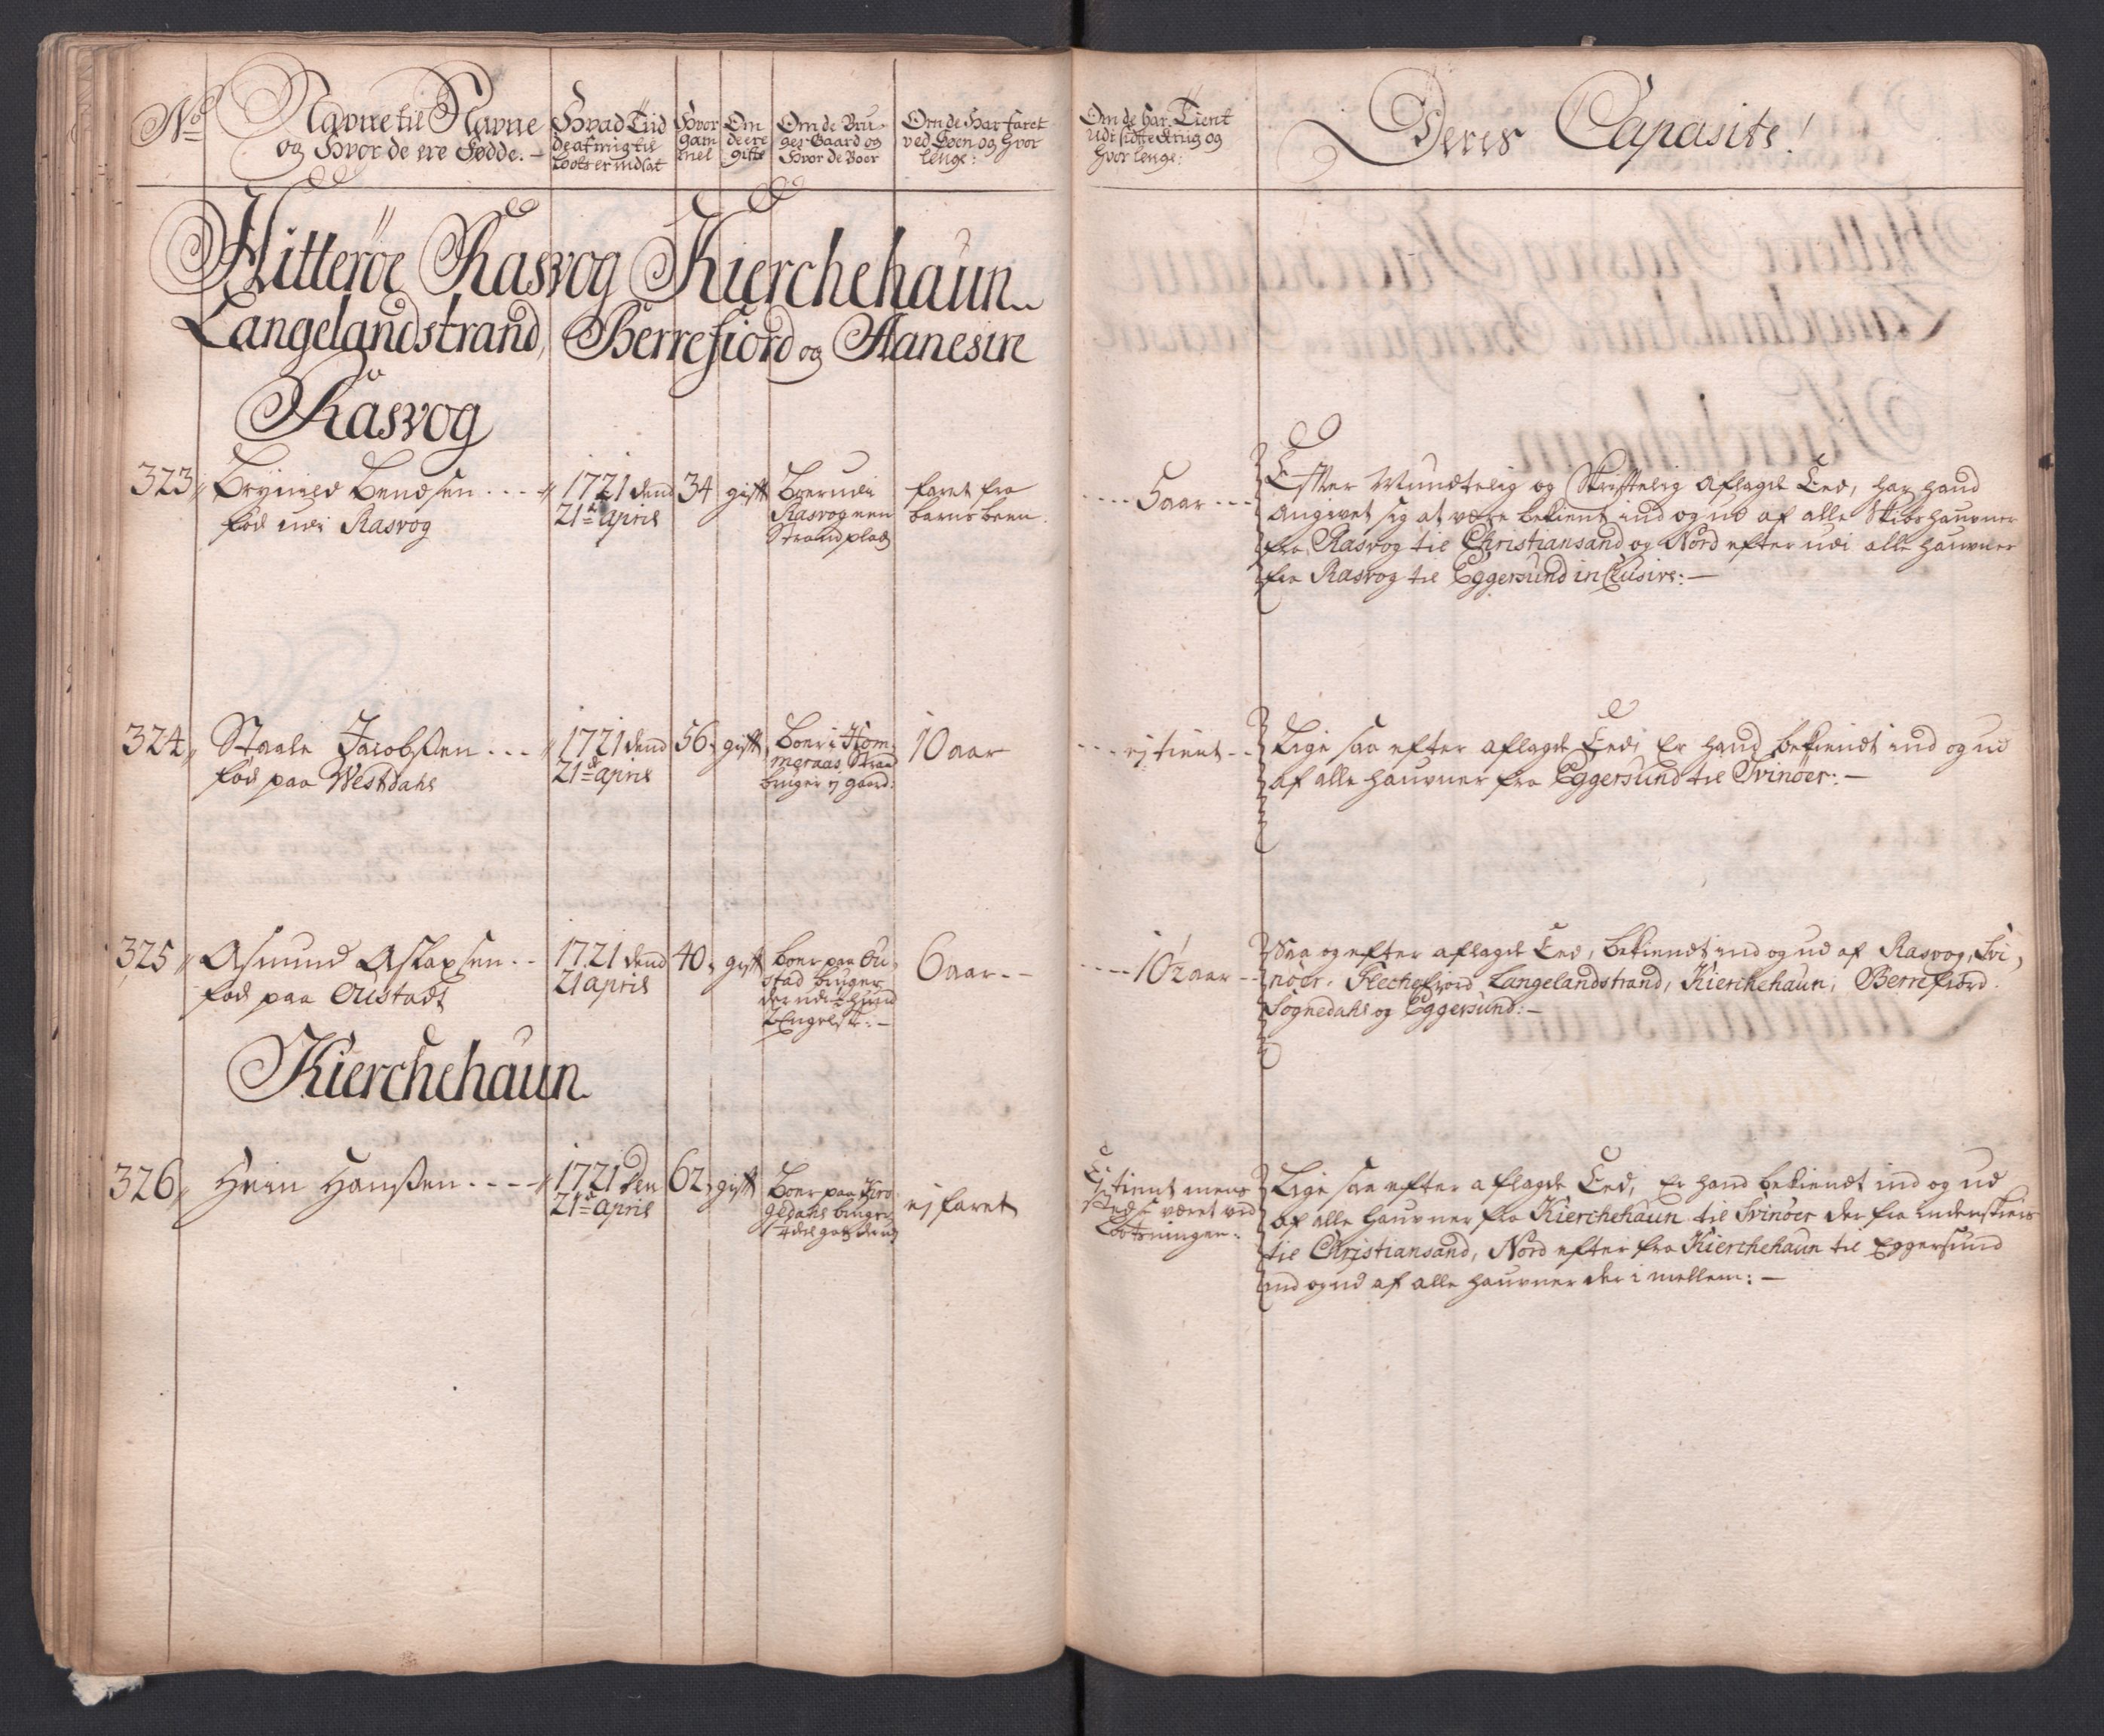 No
Navne til Navne
og Hvor de ere Fødde. -
Hvad Tiid
de af mig til
Lods er indsat
Hvor
Gam
mel
Om
de ere
gifte
Om de Bru-
ger Gaard og
Hvor de Boer
Om de Har faret
ved Soen og Hvor
lenge:
Om de Har Tient
udi sidste Krug og
Hvor lenge:
Deres Capasite!
Hitterøe Rasvog Kierchehaun
Langelandstrand, Berrefiord og Aanesire
Rasvog
323 Brynild Bendsen
fød udi Rasvog
1721 dend
21de april
34 gift
Boer udi
Rasvog een
Strandplads
faret fra
barns been
5 aar
Efter Mundtelig og Skriftelig aflagde Eed, har hand
angivet sig at være bekient ind og ud af alle Skibshaufner
fra Rasvog til Christiansand og Nord efter udi alle haufner
fra Rasvog til Eggersund inclusive: -
324 Staale Jacobsen
fød paa Westdahl
1721 dend
21de april
56 gift
Boer i Hom-
meraas Strand
bruger ej gaard:
10 aar
ej tient
Lige saa efter aflagde Eed, Er hand bekiendt ind og ud
af alle haufner fra Eggersund til Svinöer: -
325 Asmund Aslaxsen
fød paa Oustadt
1721 dend
21 april
40 gift
boer paa Ou-
stad bruger
der udi 1/2 hund
2 Engelsk: -
6 aar
10 1/2 aar
Saa og efter aflagde Eed, bekiendt ind og ud af Rasvog, Svi-
nöer, Flechefiord Langelandstrand, Kierchehaun, Berrefiord
Sognedahl og Eggersund: -
Kierchehaun
326 Hein Hansen
1721 den
21de april
62 gift
Boer paa Kiro-
gedahl bruger
ej faret
Ej tient mens
stedse været ved
Lootsningen:
Lige saa efter aflagde Eed, Er hand bekiendt ind og ud
af alle haufner fra Kierchehaun til Svinöer der fra indenskiers
til Christiansand, Nord efter fra Kierchehaun til Eggersund
ind og ud af alle haufner der i mellem: -